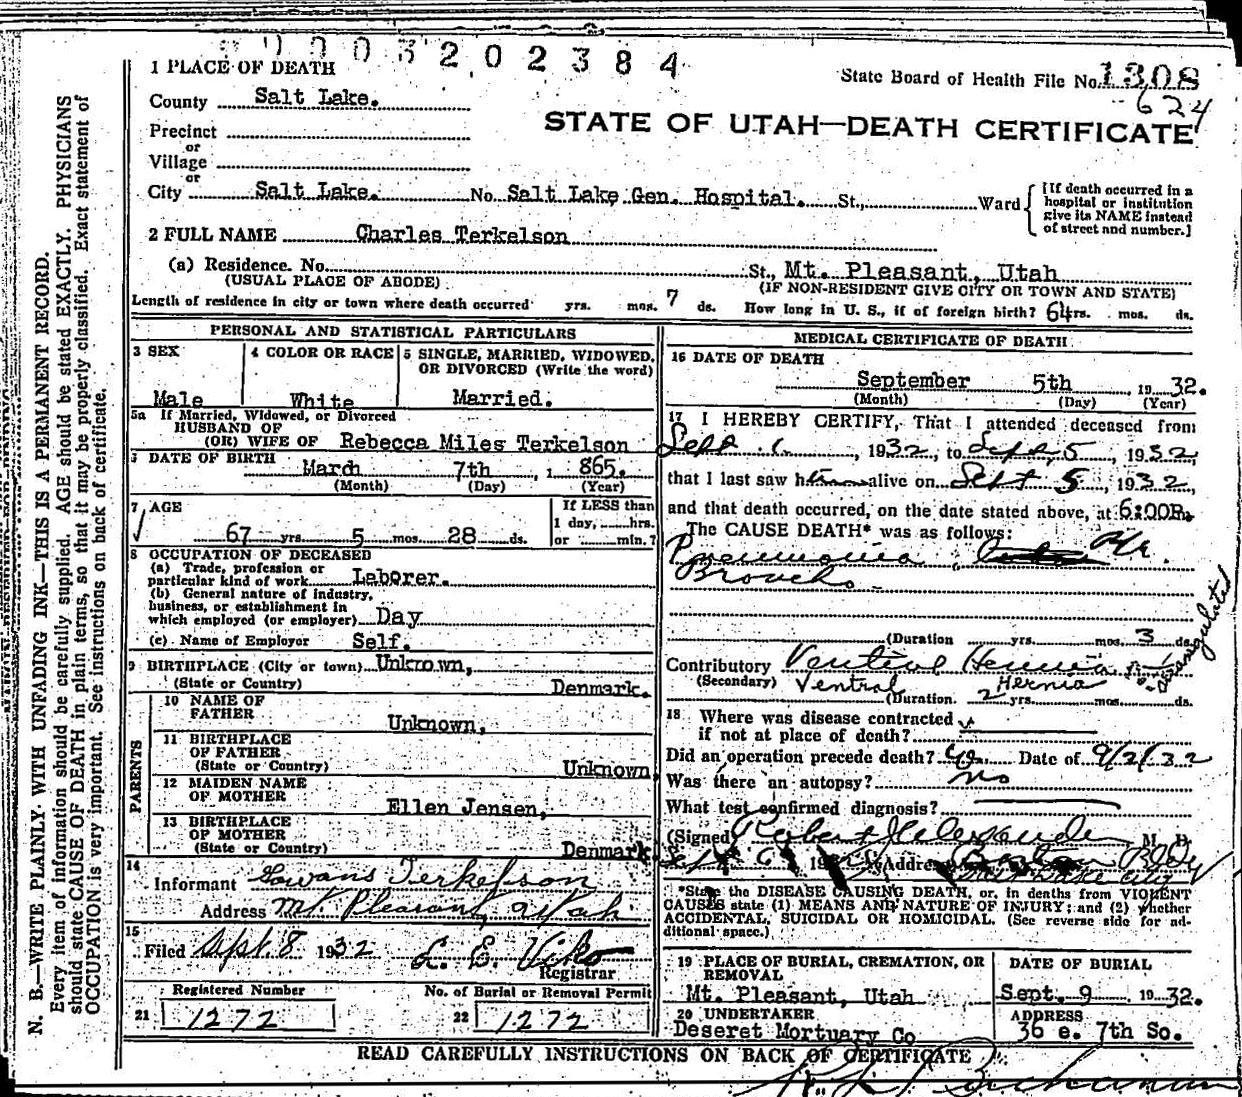 0003202384
State Board of Health File No. 1308
624
STATE OF UTAH—DEATH CERTIFICATE
1 PLACE OF DEATH
County Salt Lake.
Precinct
or
Village
or
City Salt Lake. No. Salt Lake Gen. Hospital. St., Ward
[If death occurred in a
hospital or institution
give its NAME instead
of street and number.]
2 FULL NAME Charles Terkelson
(a) Residence. No. St., Mt. Pleasant, Utah
(USUAL PLACE OF ABODE) (IF NON-RESIDENT GIVE CITY OR TOWN AND STATE)
Length of residence in city or town where death occurred yrs. mos. 7 ds. How long in U. S., if of foreign birth? 64 yrs. mos. ds.
PERSONAL AND STATISTICAL PARTICULARS
3 SEX
Male
4 COLOR OR RACE
White
5 SINGLE, MARRIED, WIDOWED,
OR DIVORCED (Write the word)
Married.
5a If Married, Widowed, or Divorced
HUSBAND OF
(OR) WIFE OF Rebecca Miles Terkelson
DATE OF BIRTH
March 7th, 1 865.
(Month) (Day) (Year)
7 AGE
67 yrs. 5 mos. 28 ds.
If LESS than
1 day, hrs.
or min.?
8 OCCUPATION OF DECEASED
(a) Trade, profession or
particular kind of work Laborer.
(b) General nature of industry,
business, or establishment in
which employed (or employer) Day
(c) Name of Employer Self.
9 BIRTHPLACE (City or town) Unknown,
(State or Country) Denmark.
PARENTS
10 NAME OF
FATHER Unknown,
11 BIRTHPLACE
OF FATHER
(State or Country) Unknown,
12 MAIDEN NAME
OF MOTHER Ellen Jensen,
13 BIRTHPLACE
OF MOTHER
(State or Country) Denmark
14
Informant Terkelson
Address Mt Pleasant, Utah
15
Filed Sept. 8 1932 L. E. Viko
Registrar
Registered Number
21 1272
No. of Burial or Removal Permit
22 1272
MEDICAL CERTIFICATE OF DEATH
16 DATE OF DEATH
September 5th, 1932.
(Month) (Day) (Year)
17 I HEREBY CERTIFY, That I attended deceased from
Sept. 1, 1932, to Sept, 5, 1932,
that I last saw him alive on Sept 5, 1932,
and that death occurred, on the date stated above, at 6:00P.
The CAUSE DEATH* was as follows:
Pneumonia,
Broncho-
(Duration yrs. mos. 3 ds.
Contributory Ventral Hernia strangulated
(Secondary) Ventral Hernia
(Duration. 2 yrs. mos. ds.
18 Where was disease contracted
if not at place of death?
Did an operation precede death? Yes Date of 9/2/32
Was there an autopsy? no
What test confirmed diagnosis?
(Signed) Robert Alexander M. D.
Sept 6 19 (Address)
*State the DISEASE CAUSING DEATH, or, in deaths from VIOLENT
CAUSES state (1) MEANS AND NATURE OF INJURY; and (2) whether
ACCIDENTAL, SUICIDAL OR HOMICIDAL. (See reverse side for ad-
ditional space.)
19 PLACE OF BURIAL, CREMATION, OR
REMOVAL
Mt. Pleasant, Utah
DATE OF BURIAL
Sept. 9 1932.
20 UNDERTAKER
Deseret Mortuary Co
ADDRESS
36 e. 7th So.
READ CAREFULLY INSTRUCTIONS ON BACK OF CERTIFICATE
Buchanan
N. B.—WRITE PLAINLY. WITH UNFADING INK—THIS IS A PERMANENT RECORD.
Every item of information should be carefully supplied. AGE should be stated EXACTLY. PHYSICIANS
should state CAUSE OF DEATH in plain terms, so that it may be properly classified. Exact statement of
OCCUPATION is very important. See instructions on back of certificate.